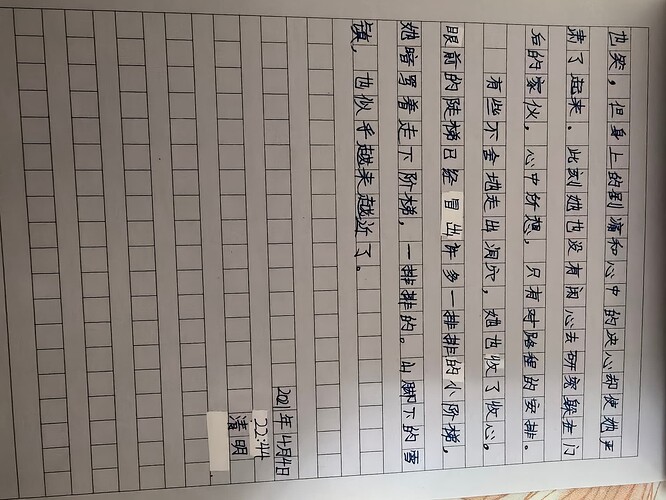 也笑，但身上的剧痛和心中的决心却使她严
肃了起来。此刻她也没有闲心去研究躲在门
后的家伙，心中所想，只有对路程的安排。
有些不舍地走出洞穴，她也收了收心。
眼前的陡梯已经冒出许多一排排的小阶梯，
她暗骂着走下阶梯，一排排的。山脚下的雪
镇，也似乎越来越近了。
2021年4月4日
22:44
清明